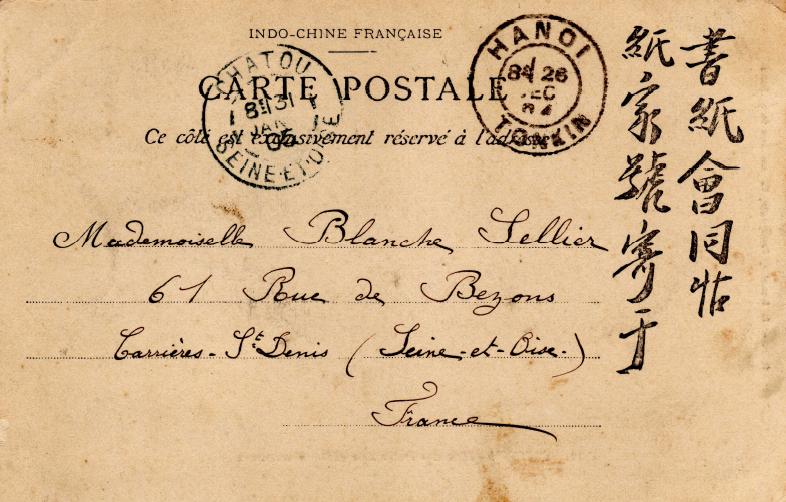 INDO-CHINE FRANÇAISE
CARTE POSTALE
Ce côté est exclusivement réservé à l'adresse
CHATOU
8E 31
JAN
05
SEINE-ET-OISE
HANOI
8E 26
DEC
04
TONKIN
Mademoiselle Blanche Sellier
61 Rue de Bezons
Carrières-St-Denis (Seine-et-Oise-)
France
書紙會同帖
紙家號寄于